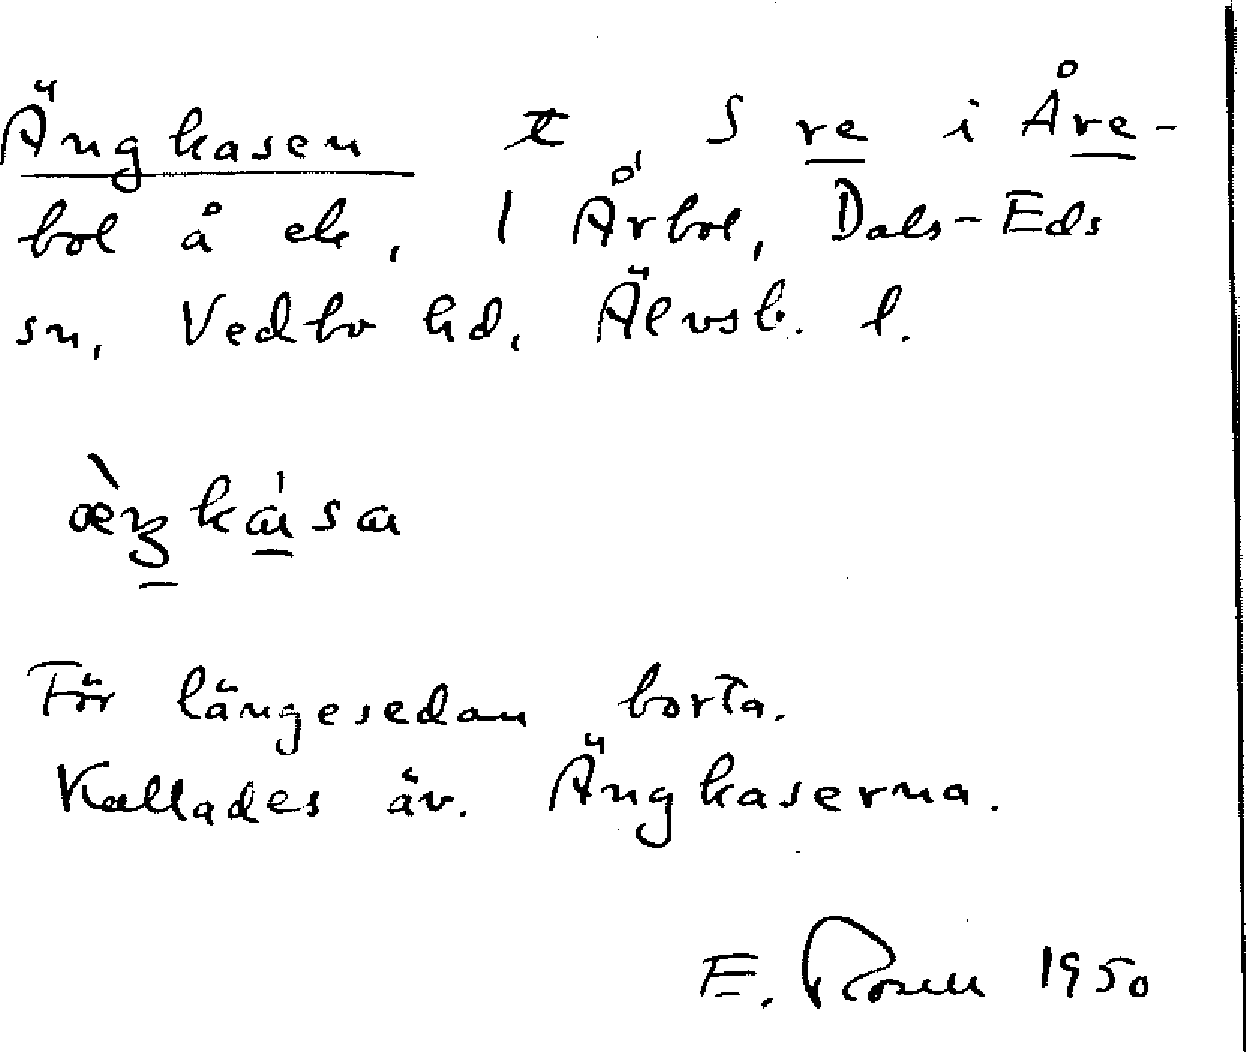 Ängkasen t, S re i Åre-
bol å ek, 1 Årbol, Dals-Eds
sn, Vedbo hd, Älvsb. l.
För längesedan borta.
Kallades äv. Ängkaserna.
E. Rosell 1950